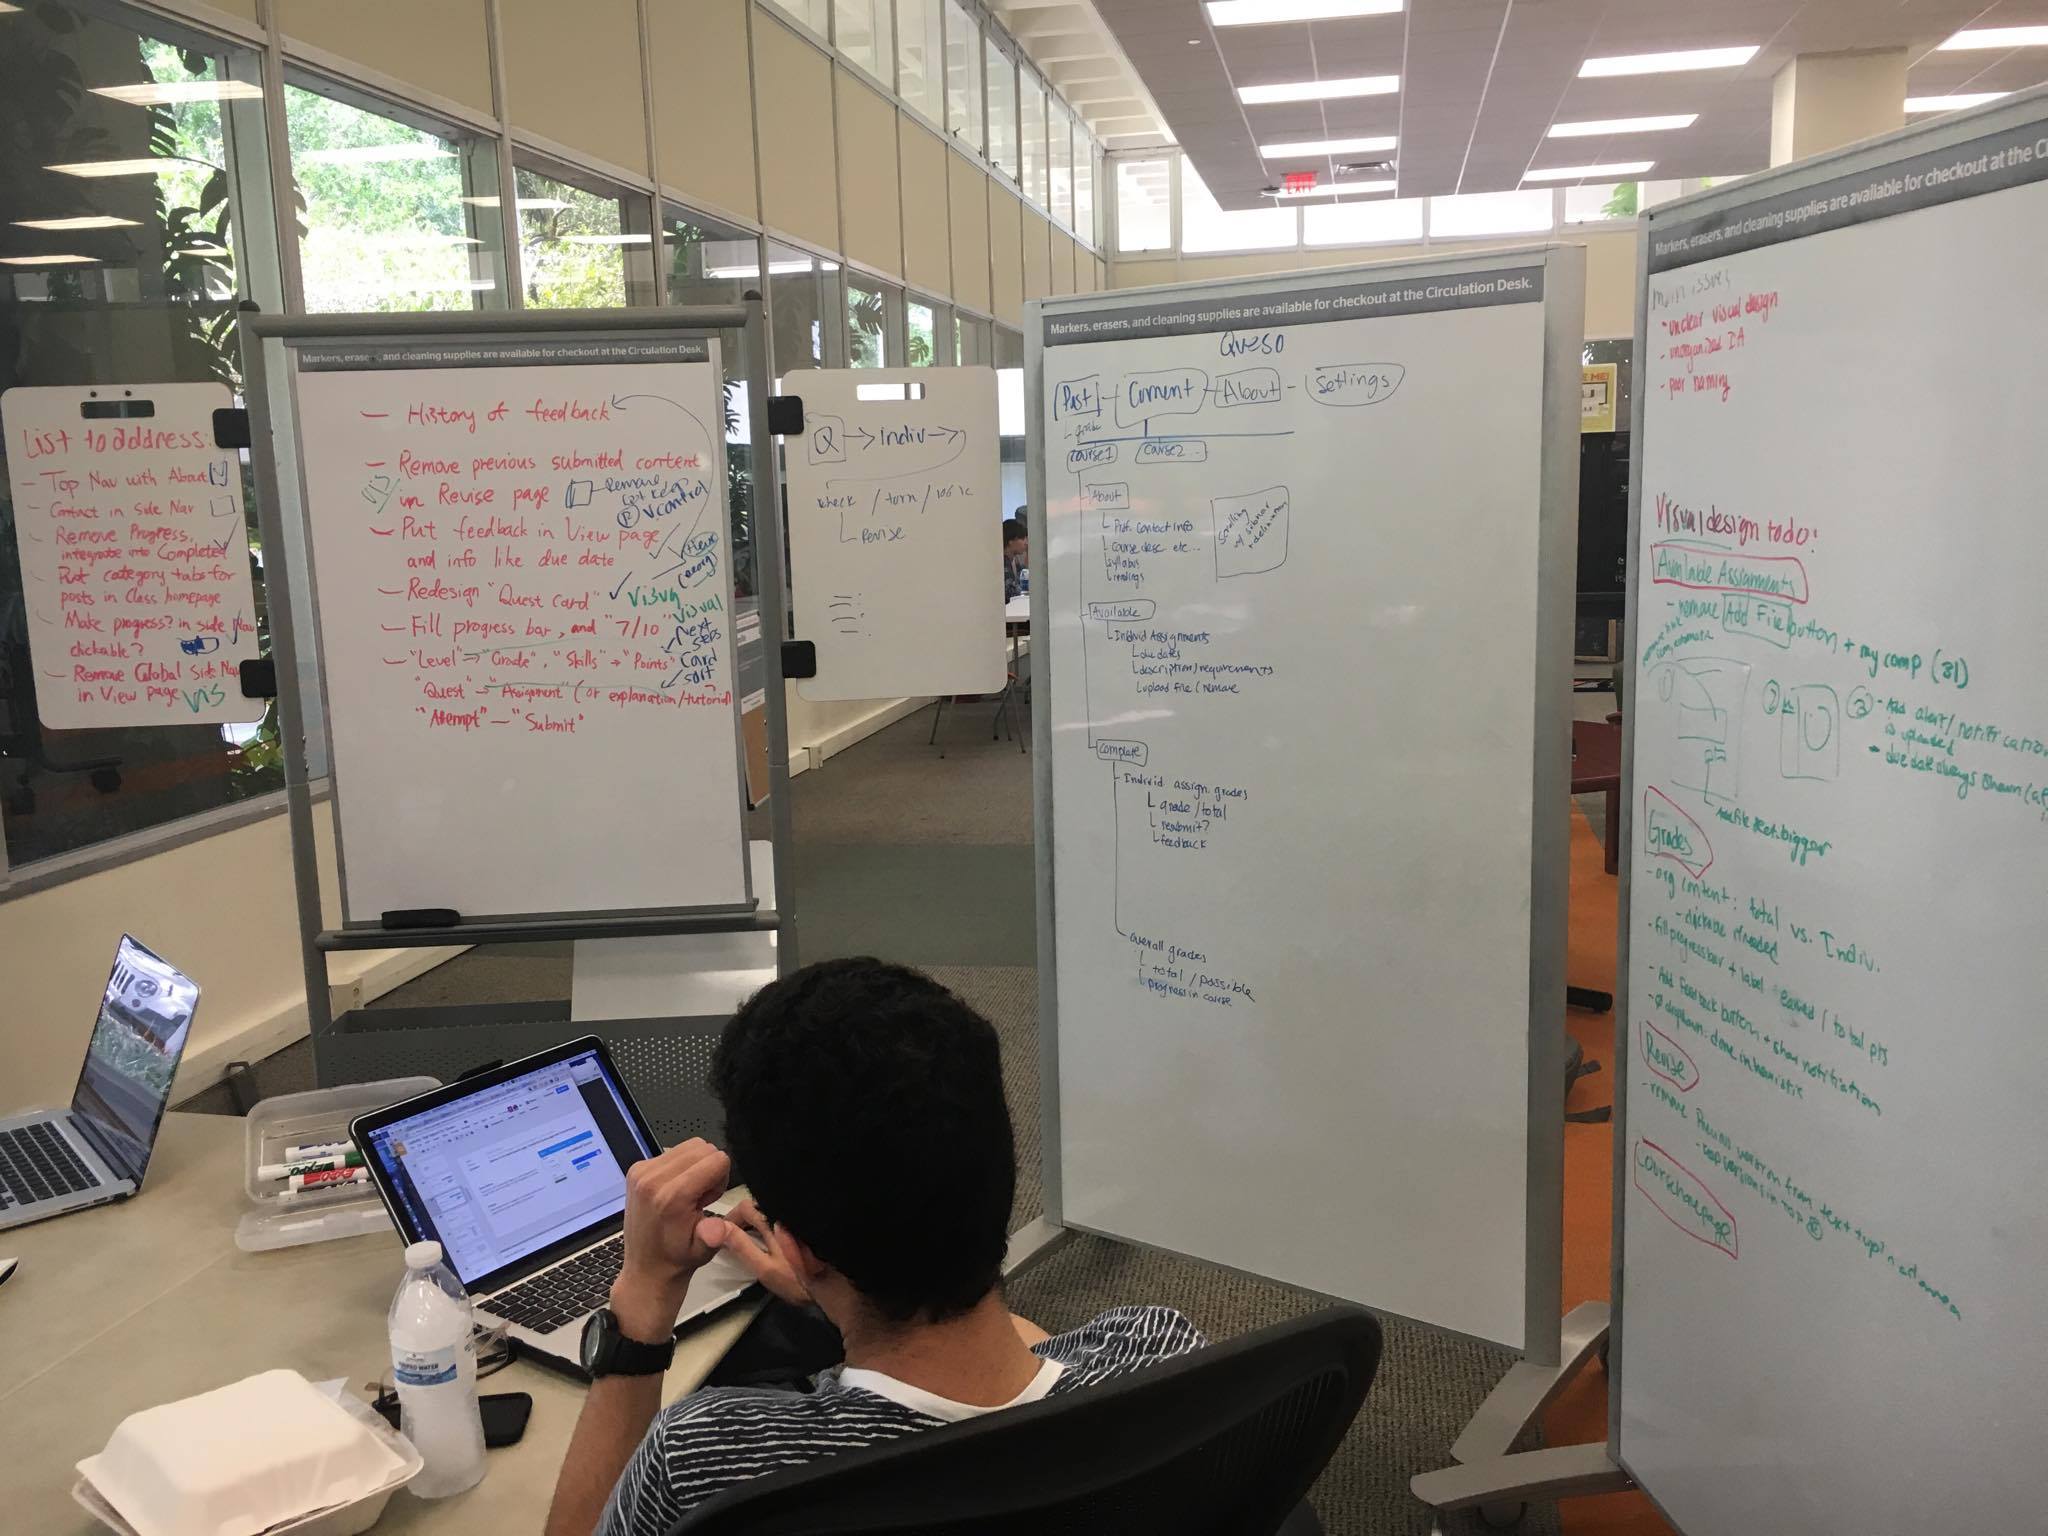 List to address:
- Top Nav with About
- Contact in Side Nav
- Remove Progress,
integrate into Completed
- Post category tabs for
posts in Class homepage
- Make progress? in side Nav
clickable?
- Remove Global Side Nav
in View page Vis
Markers, erasers, and cleaning supplies are available for checkout at the Circulation Desk.
- History of feedback
- Remove previous submitted content
Vis in Revise page
Remove
V control
- Put feedback in View page
and info like due date
- Redesign "Quest Card"
Visual
- Fill progress bar, and "7/10"
Visual
Next
Steps
- "Level" → "Grade", "Skills" → "Points"
Card
sort
"Quest" → "Assignment" (or explanation/tutorial)
"Attempt" - "Submit"
Q → Indiv →
check / turn /
Revise
Markers, erasers, and cleaning supplies are available for checkout at the Circulation Desk.
Queso
Past - Current - About - Settings
grade
course1 course2...
About
Prof. contact info
course desc etc...
syllabus
readings
Scrolling
w/ subnav
Available
Individ Assignments
due dates
description/requirements
upload file/remove
Complete
Individ. assign. grades
grade/total
resubmit?
feedback
overall grades
total / possible
progress in course
Markers, erasers, and cleaning supplies are available for checkout at the Ci
main issues
- unclear visual design
- unorganized IA
- poor naming
Visual design to do:
Available Assignments
- remove Add File button + my comp (31)
1
2
3 - Add alert/notification
is uploaded
- due date always shown
Add file text bigger
Grades
- org content: total vs. Indiv.
- clickable if needed
- fill progress bar + label earned / total pts
- Add feedback button + show notification
dropdown: done in heuristic
Revise
- remove Previous version from text
Course homepage
EXPO
EXPO
EXIT